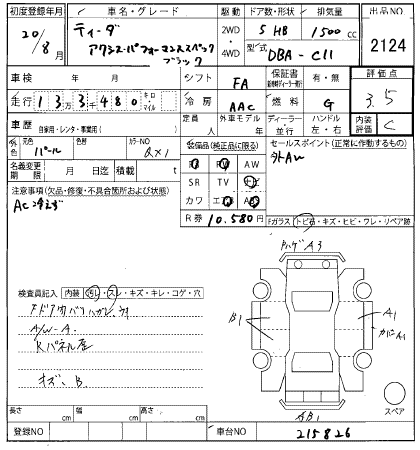 初度登録年月 車名・グレード 駆動 ドア数・形状 排気量 出品NO
20/8月 ティーダ 2WD・4WD 5 HB 1500cc 2124
アクシス・パフォーマンススペック
ブラック
型式 DBA-C11
車検 年 月 シフト FA 保証書 有・無 評価点
走行 133千480 キロ・マイル 冷房 AAC 燃料 G 3.5
車歴 自家用・レンタ・事業用( ) 定員 人 外車モデル 年 ディーラー・並行 ハンドル 左・右 内装評価 C
外色 元色 パール 色替 カラーNO QX1
名義変更期限 月 日迄 積載 t
装備品(純正品に限る)
SR TV
カワ
AW
セールスポイント(正常に作動するもの)
外AW
注意事項(欠品・修復・不具合箇所および状態)
AC冷えず
R券 10,580円
Fガラス トビ石・キズ・ヒビ・ワレ・リペア跡
A3
検査員記入 内装 汚れ・スレ・キズ・キレ・コゲ・穴
A/W-A
B1
A1
A1
Kパネル歪
B1
スペア
長さ cm 幅 cm 高さ cm
登録NO 車台NO 215826